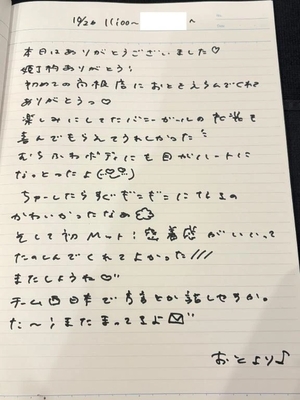 10/26 11:00~ ~
本日はありがとうございました♡
予約ありがとう!
初めての 店におとをえらんでくれて
ありがとうっ♡
楽しみにしてたバニーガールの衣装を
喜んでもらえてうれしかった
むちふわボディにも目がハートに
なっとったよ
ちゅーしたらすぐギンギンに
かわいかったなぁ
そして初Mットの密着感がいいって
たのしんでくれてよかった///
またしようね♡
チーム西日本で
た~!またまってるよ
おとより♪